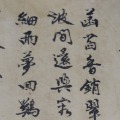 菡萏香銷翠
波間還與容
細雨夢回鷄